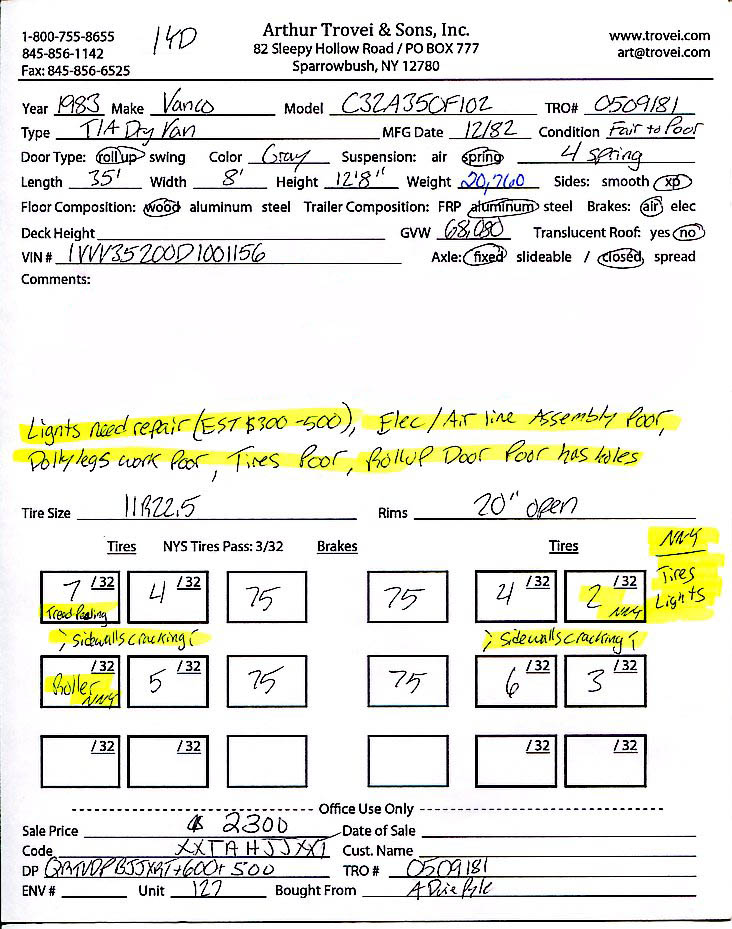 1-800-755-8655
845-856-1142
Fax: 845-856-6525
14D
Arthur Trovei & Sons, Inc.
82 Sleepy Hollow Road / PO BOX 777
Sparrowbush, NY 12780
www.trovei.com
art@trovei.com
Year 1983 Make Vanco Model C32A350F102 TRO# 0509181
Type T/A Dry Van MFG Date 12/82 Condition Fair to Poor
Door Type: roll up swing Color Gray Suspension: air spring 4 spring
Length 35' Width 8' Height 12'8" Weight 20,760 Sides: smooth xp
Floor Composition: wood aluminum steel Trailer Composition: FRP aluminum steel Brakes: air elec
Deck Height GVW 68,080 Translucent Roof: yes no
VIN # 1VVV35200D1001156 Axle: fixed slideable / closed spread
Comments:
Lights need repair (EST $300-500), Elec/Air line Assembly Poor,
Dolly legs work Poor, Tires Poor, Rollup Door Poor has holes
Tire Size 11R22.5 Rims 20" open
Tires NYS Tires Pass: 3/32 Brakes Tires
NNY
Tires
Lights
7 /32 Tread Peeling 4 /32 75 75 4 /32 2 /32 NNY
> Sidewalls cracking < > Sidewalls cracking <
/32 Roller NNY 5 /32 75 75 6 /32 3 /32
/32 /32 /32 /32
Office Use Only
Sale Price $ 2300 Date of Sale
Code XXTAHJJXXT Cust. Name
DP +600+500 TRO # 0509181
ENV # Unit 127 Bought From A Duie Pyle